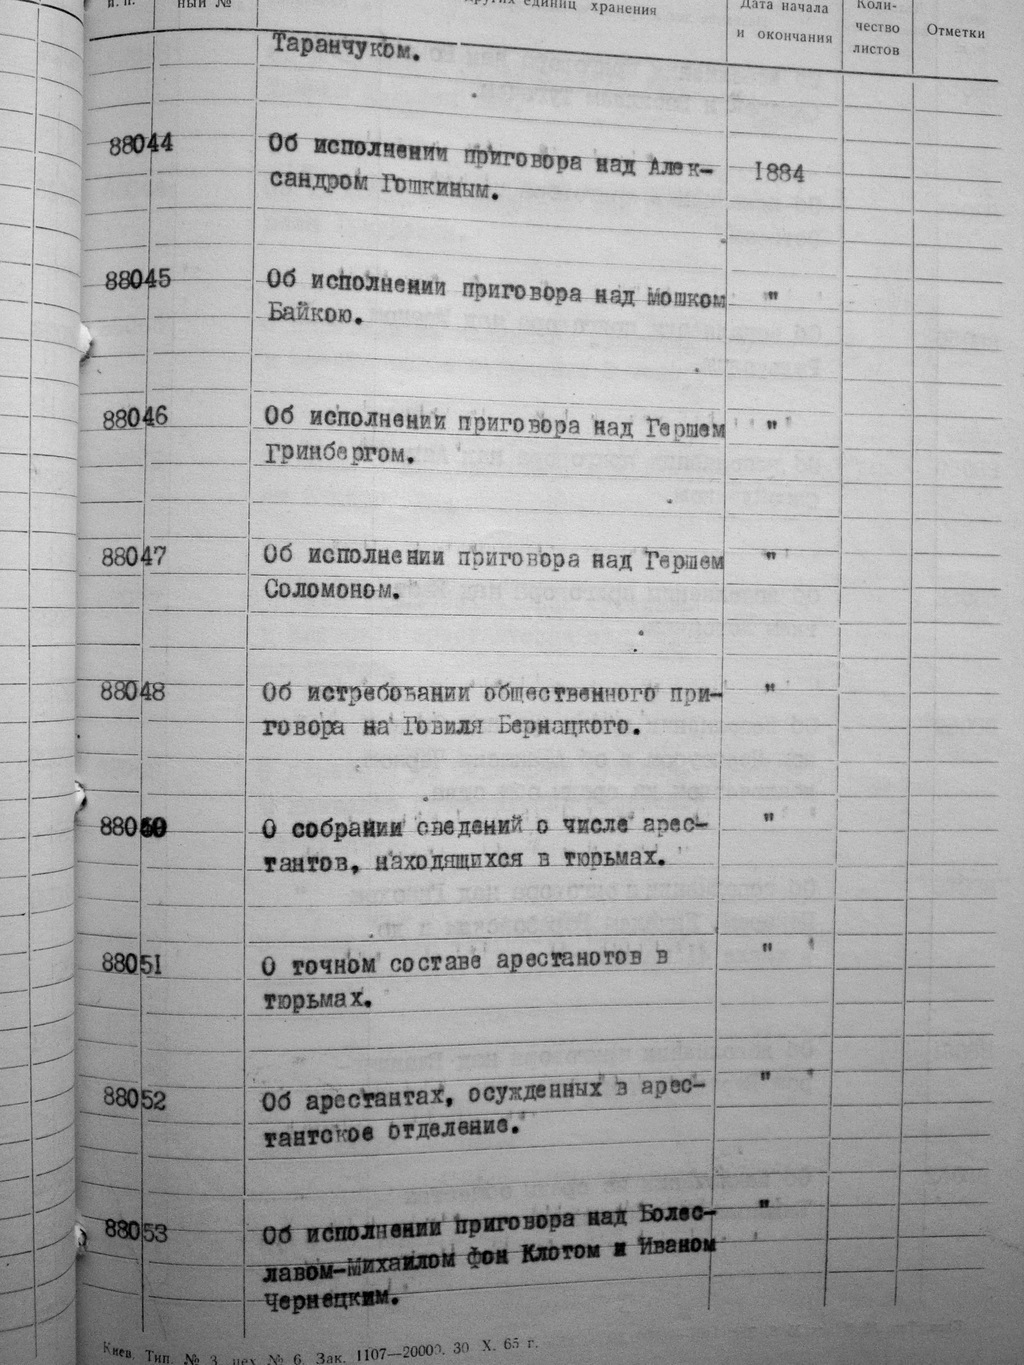 п. п.
ный №
других единиц хранения
Дата начала
и окончания
Коли-
чество
листов
Отметки
Таранчуком.
88044 Об исполнении приговора над Алек- 1884
сандром Гошкиным.
88045 Об исполнении приговора над Мошком "
Байкою.
88046 Об исполнении приговора над Гершем "
Гринбергом.
88047 Об исполнении приговора над Гершем "
Соломоном.
88048 Об истребовании общественного при- "
говора на Говиля Бернацкого.
88050 О собрании сведений о числе арес- "
тантов, находящихся в тюрьмах.
88051 О точном составе арестанотов в "
тюрьмах.
88052 Об арестантах, осужденных в арес- "
тантское отделение.
88053 Об исполнении приговора над Болес- "
лавом-Михаилом фон Клотом и Иваном
Чернецким.
Киев. Тип. № 3, цех № 6. Зак. 1107—20000. 30 X. 65 г.